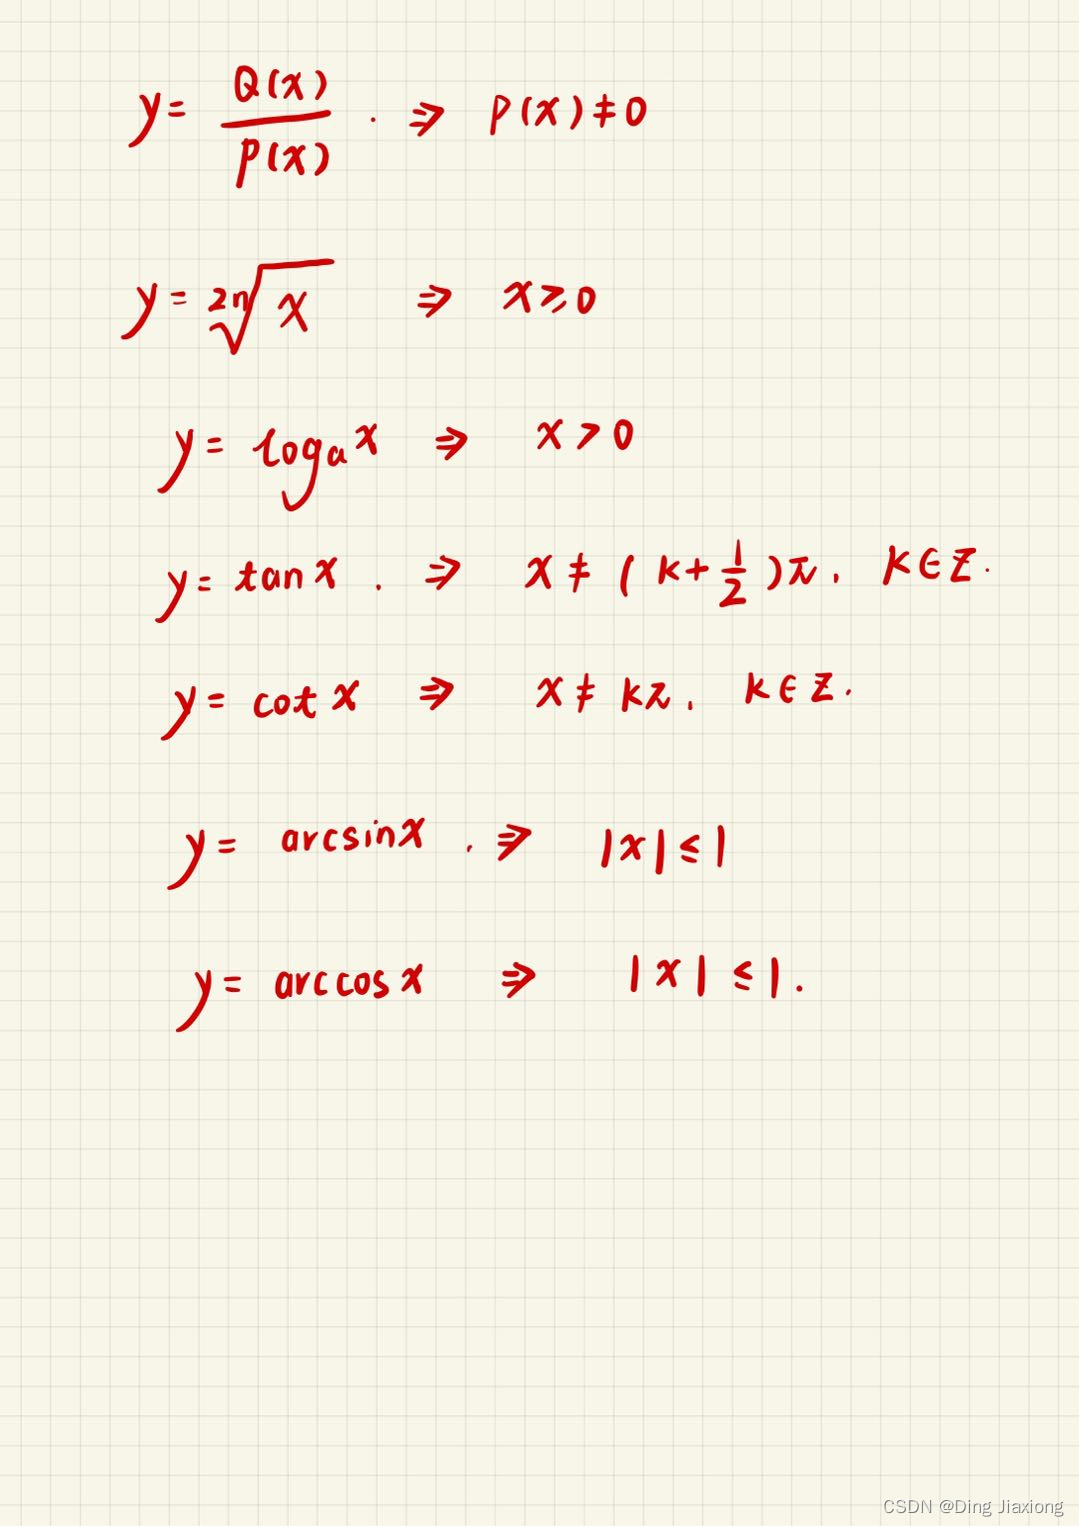 y = Q(x)/P(x) . ⇒ P(x) ≠ 0
y = ²ⁿ√x ⇒ x ≥ 0
y = logₐx ⇒ x > 0
y = tan x . ⇒ x ≠ (k + 1/2)π, k ∈ Z.
y = cot x ⇒ x ≠ kπ, k ∈ Z.
y = arcsin x . ⇒ |x| ≤ 1
y = arccos x ⇒ |x| ≤ 1.
CSDN @Ding Jiaxiong